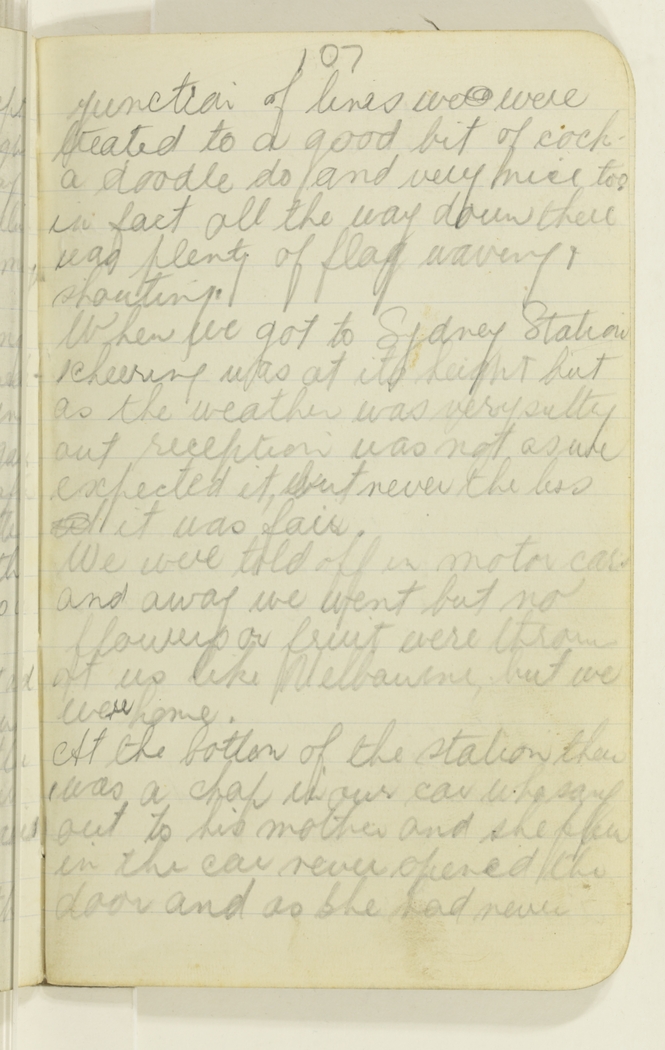 107
junction of lines we were
treated to a good bit of cock-
a doodle do and very nice too
in fact all the way down there
was plenty of flag waving &
shouting.
When we got to Sydney Station
cheering was at its height but
as the weather was very sultry
out reception was not as we
expected it, but never the less
it was fair.
We were told off in motor cars
and away we went but no
flowers or fruit were thrown
at us like Melbourne, but we
were home.
At the bottom of the station there
was a chap in our car who sang
out to his mother and she flew
in the car never opened the
door and as she had never